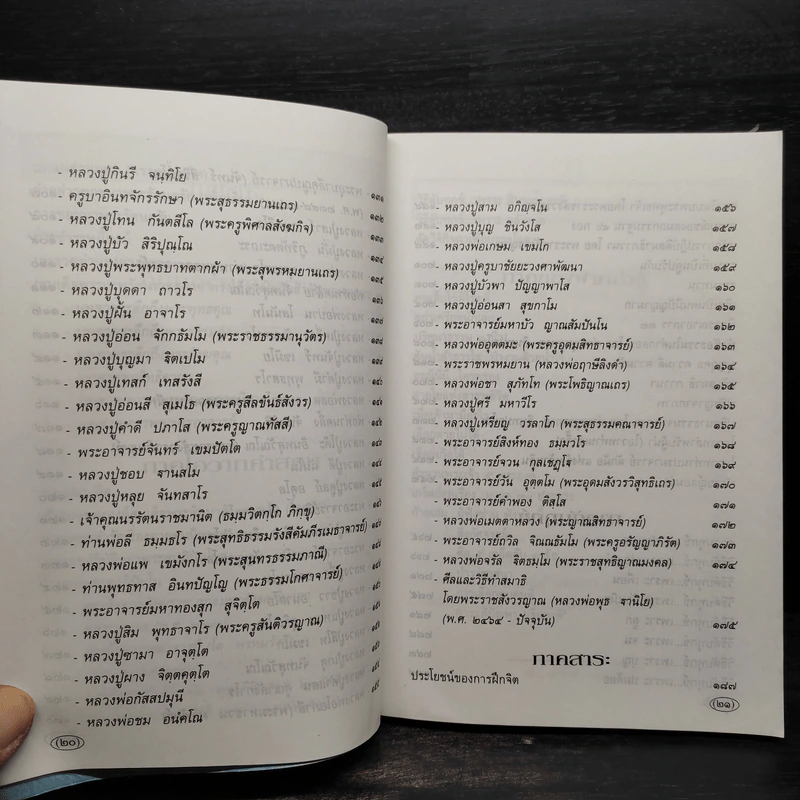 - หลวงปู่กินรี จนฺทิโย ๑๓๑
- ครูบาอินทจักรรักษา (พระสุธรรมยานเถร) ๑๓๒
- หลวงปู่โทน กันตสีโล (พระครูพิศาลสังฆกิจ) ๑๓๓
- หลวงปู่บัว สิริปุณฺโณ ๑๓๔
- หลวงปู่พระพุทธบาทตากผ้า (พระสุพรหมยานเถร) ๑๓๕
- หลวงปู่บุดดา ถาวโร
- หลวงปู่ฝั้น อาจาโร
- หลวงปู่อ่อน จักกธัมโม (พระราชธรรมานุวัตร)
- หลวงปู่บุญมา ฐิตเปโม
- หลวงปู่เทสก์ เทสรังสี
- หลวงปู่อ่อนสี สุเมโธ (พระครูสีลขันธ์สังวร)
- หลวงปู่คำดี ปภาโส (พระครูญาณทัสสี)
- พระอาจารย์จันทร์ เขมปัตโต
- หลวงปู่ชอบ ฐานสโม
- หลวงปู่หลุย จันทสาโร
- เจ้าคุณนรรัตนราชมานิต (ธมฺมวิตกฺโก ภิกขุ)
- ท่านพ่อลี ธมฺมธโร (พระสุทธิธรรมรังสีคัมภีรเมธาจารย์)
- หลวงพ่อแพ เขมังกโร (พระสุนทรธรรมภาณี)
- ท่านพุทธทาส อินทปัญโญ (พระธรรมโกศาจารย์)
- พระอาจารย์มหาทองสุก สุจิตฺโต
- หลวงปู่สิม พุทธาจาโร (พระครูสันติวรญาณ)
- หลวงปู่ซามา อาจุตฺโต
- หลวงปู่ผาง จิตฺตคุตฺโต
- หลวงพ่อกัสสปมุนี
- หลวงพ่อชม อนํคโณ
(๒๐)
- หลวงปู่สาม อกิญฺจโน ๑๕๖
- หลวงปู่บุญ ชินวังโส ๑๕๗
- หลวงพ่อเกษม เขมโก ๑๕๘
- หลวงปู่ครูบาชัยยะวงศาพัฒนา ๑๕๙
- หลวงปู่บัวพา ปัญญาพาโส ๑๖๐
- หลวงปู่อ่อนสา สุขกาโม ๑๖๑
- พระอาจารย์มหาบัว ญาณสัมปันโน ๑๖๒
- หลวงพ่ออุตตมะ (พระครูอุดมสิทธาจารย์) ๑๖๓
- พระราชพรหมยาน (หลวงพ่อฤาษีลิงดำ) ๑๖๔
- หลวงพ่อชา สุภัทโท (พระโพธิญาณเถร) ๑๖๕
- หลวงปู่ศรี มหาวีโร ๑๖๖
- หลวงปู่เหรียญ วรลาโภ (พระสุธรรมคณาจารย์) ๑๖๗
- พระอาจารย์สิงห์ทอง ธมฺมวโร ๑๖๘
- พระอาจารย์จวน กุลเชฏโฐ ๑๖๙
- พระอาจารย์วัน อุตฺตโม (พระอุดมสังวรวิสุทธิเถร) ๑๗๐
- พระอาจารย์คำพอง ติสโส ๑๗๑
- หลวงพ่อเมตตาหลวง (พระญาณสิทธาจารย์) ๑๗๒
- พระอาจารย์ถวิล จิณณธัมโม (พระครูอรัญญาภิรัต) ๑๗๓
- หลวงพ่อจรัล ฐิตธมฺโม (พระราชสุทธิญาณมงคล) ๑๗๔
- ศีลและวิธีทำสมาธิ
โดยพระราชสังวรญาณ (หลวงพ่อพุธ ฐานิโย)
(พ.ศ. ๒๔๖๔ - ปัจจุบัน) ๑๗๕
ภาคสาระ
ประโยชน์ของการฝึกจิต ๑๘๗
(๒๑)